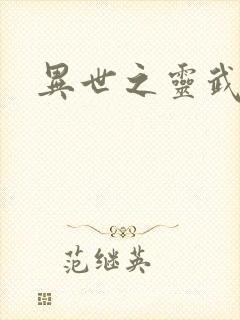 異世之靈武
范继英